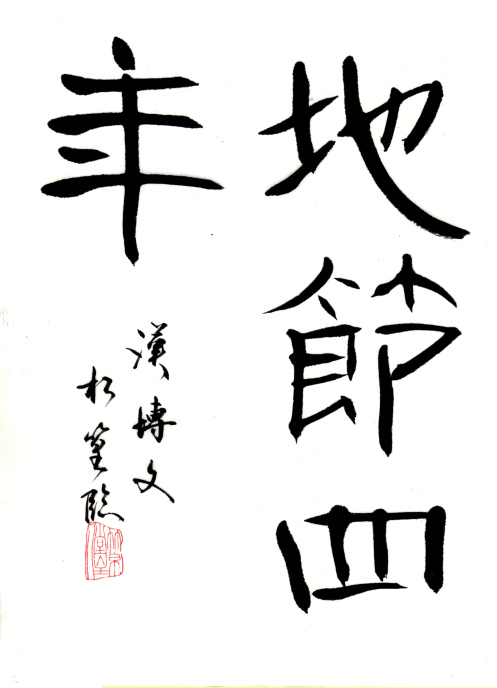 地節四
年
漢塼文
松篁臨